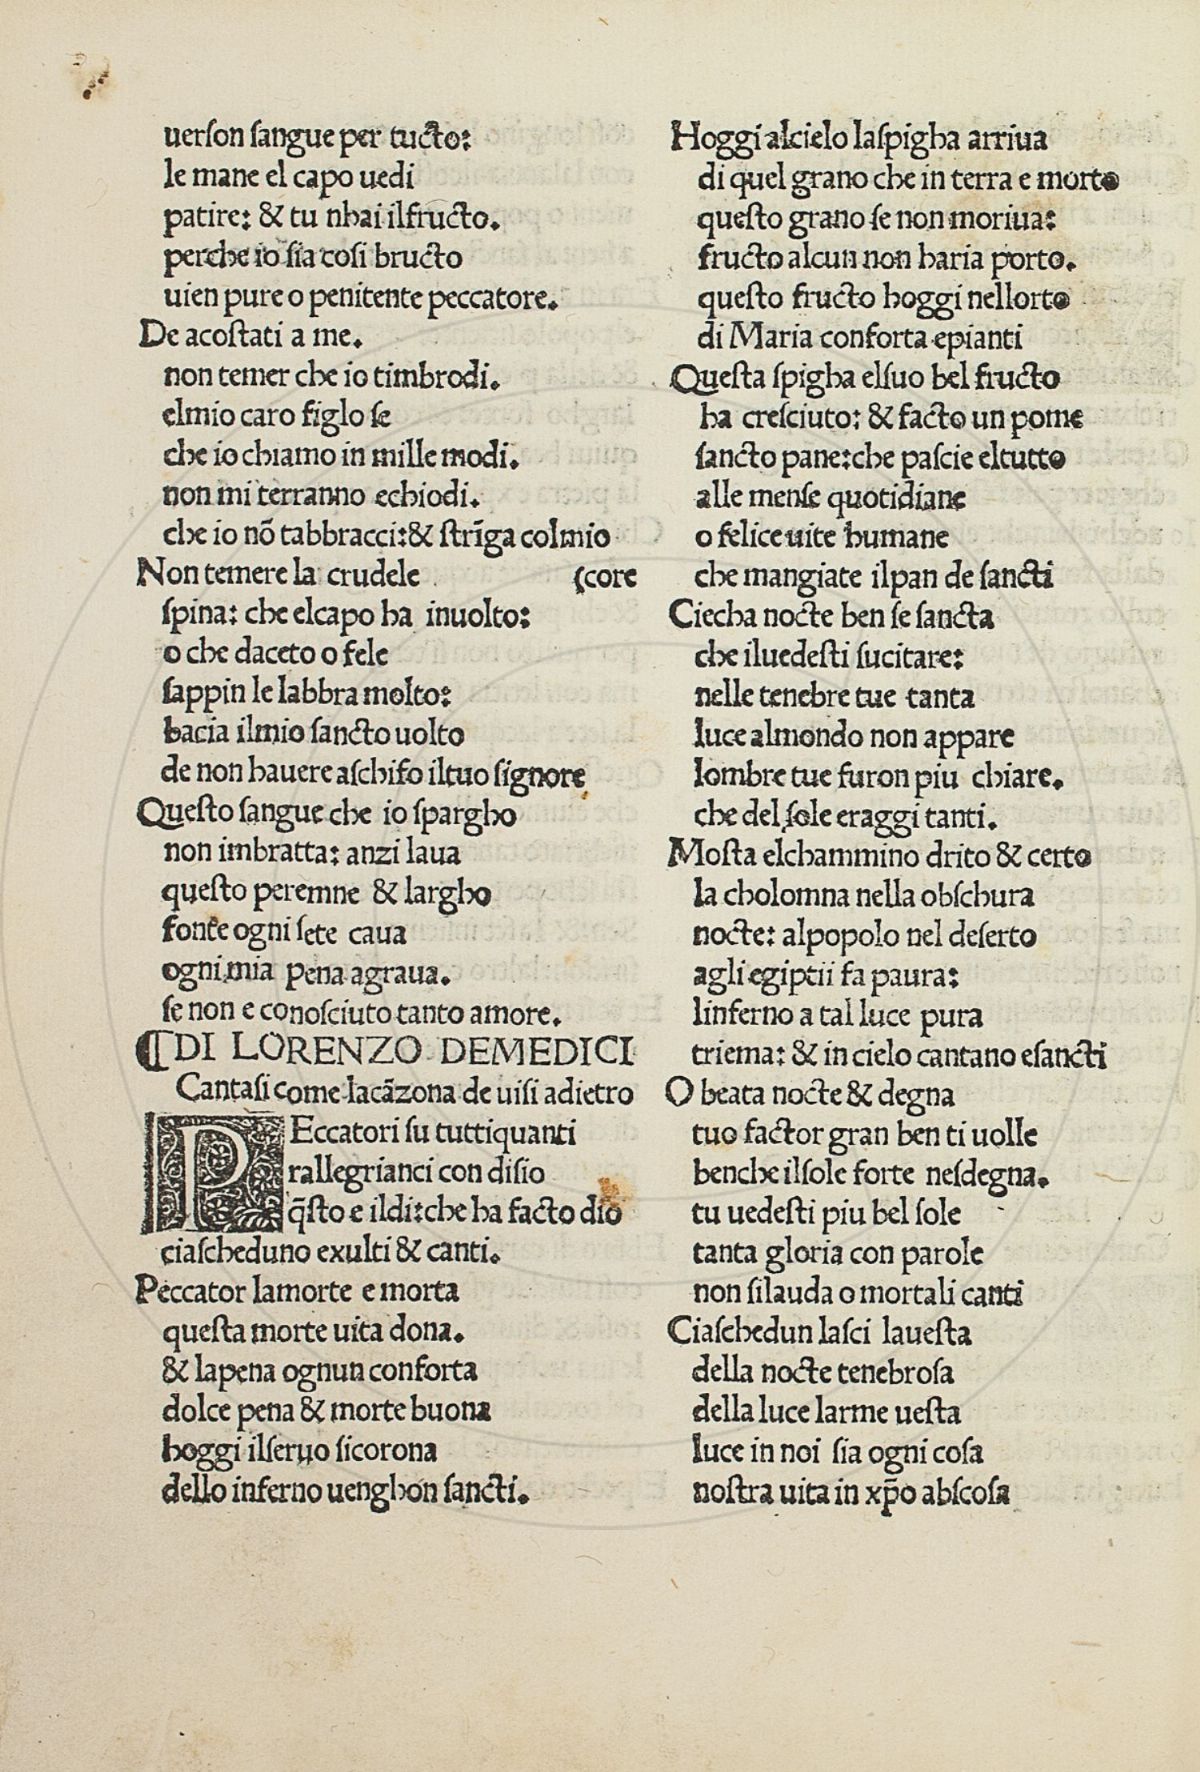 uerſon ſangue per tucto:
le mane el capo uedi
patire: & tu nhai ilfructo.
perche io ſia coſi bructo
uien pure o penitente peccatore.
De acoſtati a me.
non temer che io timbrodi.
elmio caro figlo ſe
che io chiamo in mille modi.
non mi terranno echiodi.
che io nō tabbracci:& ſtrīga colmio
Non temere la crudele (core
ſpina: che elcapo ha inuolto:
o che daceto o fele
ſappin le labbra molto:
bacia ilmio ſancto uolto
de non hauere aſchifo iltuo ſignore
Queſto ſangue che io ſpargho
non imbratta: anzi laua
queſto peremne & largho
fonte ogni ſete caua
ogni mia pena agraua.
ſe non e conoſciuto tanto amore.
¶DI LORENZO DEMEDICI
Cantaſi come lacāzona de uiſi adietro
PEccatori ſu tuttiquanti
rallegrianci con diſio
q̄ſto e ildi:che ha facto dio
ciaſcheduno exulti & canti.
Peccator lamorte e morta
queſta morte uita dona.
& lapena ognun conforta
dolce pena & morte buona
hoggi ilſeruo ſicorona
dello inferno uenghon ſancti.
Hoggi alcielo laſpigha arriua
di quel grano che in terra e morto
queſto grano ſe non moriua:
fructo alcun non haria porto.
queſto fructo hoggi nellorto
di Maria conforta epianti
Queſta ſpigha elſuo bel fructo
ha creſciuto: & facto un pome
ſancto pane:che paſcie eltutto
alle menſe quotidiane
o felice uite humane
che mangiate ilpan de ſancti
Ciecha nocte ben ſe ſancta
che iluedeſti ſucitare:
nelle tenebre tue tanta
luce almondo non appare
lombre tue furon piu chiare.
che del ſole eraggi tanti.
Moſta elchammino drito & certo
la cholomna nella obſchura
nocte: alpopolo nel deſerto
agli egiptii fa paura:
linferno a tal luce pura
triema: & in cielo cantano eſancti
O beata nocte & degna
tuo factor gran ben ti uolle
benche ilſole forte neſdegna.
tu uedeſti piu bel ſole
tanta gloria con parole
non ſilauda o mortali canti
Ciaſchedun laſci laueſta
della nocte tenebroſa
della luce larme ueſta
luce in noi ſia ogni coſa
noſtra uita in xp̄o abſcoſa